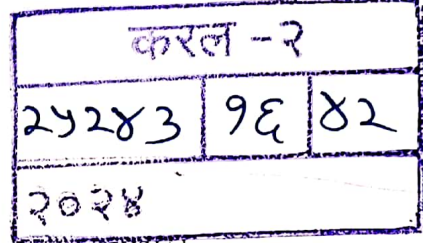 करल - २
२५२४३ १६ ४२
२०२४